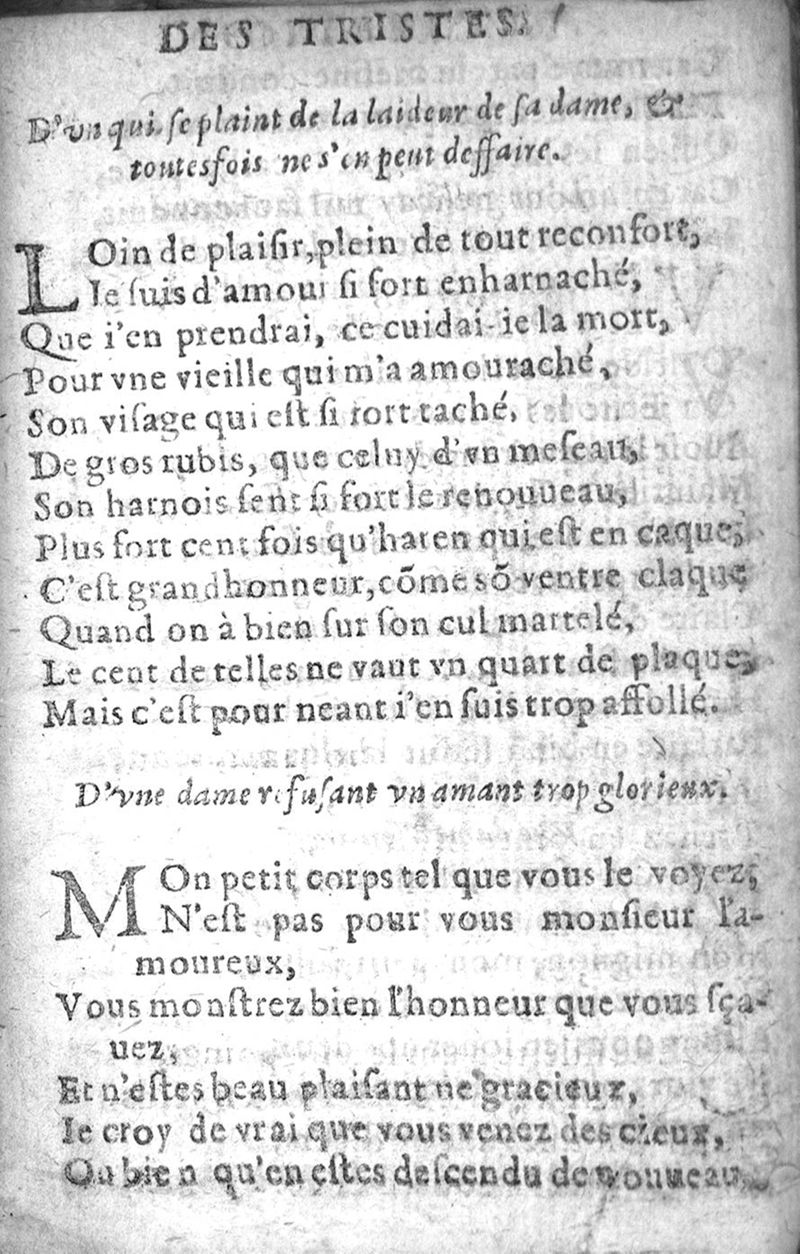 DES TRISTES.
D'vn qui se plaint de la laideur de sa dame, &
toutesfois ne s'en peut deffaire.
LOin de plaisir, plein de tout reconfort,
Ie suis d'amour si fort enharnaché,
Que i'en prendrai, ce cuidai-ie la mort,
Pour vne vieille qui m'a amouraché,
Son visage qui est si fort taché,
De gros rubis, que celuy d'vn meseau,
Son harnois sent si fort le renouueau,
Plus fort cent fois qu'haren qui est en caque,
C'est grand honneur, cõme sõ ventre claque
Quand on à bien sur son cul martelé,
Le cent de telles ne vaut vn quart de plaque,
Mais c'est pour neant i'en suis trop affollé.
D'vne dame refusant vn amant trop glorieux.
MOn petit corps tel que vous le voyez,
N'est pas pour vous monsieur l'a-
moureux,
Vous monstrez bien l'honneur que vous sça-
uez,
Et n'estes beau plaisant ne gracieux,
Ie croy de vrai que vous venez des cieux,
Ou bien qu'en estes descendu de nouueau,